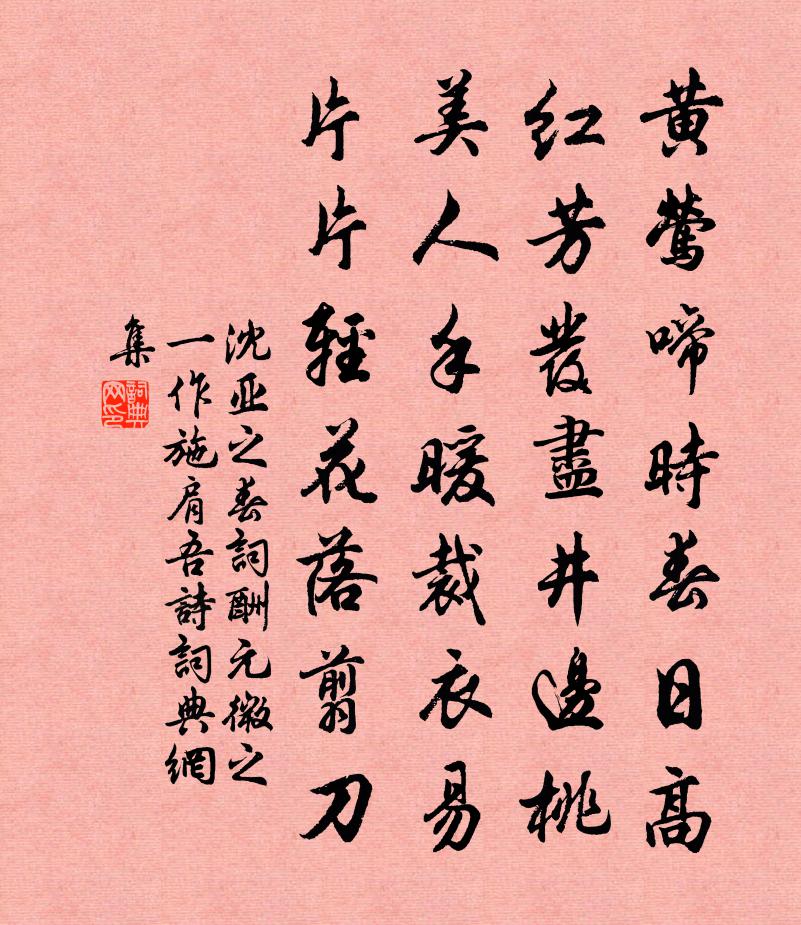 黃鶯啼時春日高
紅芳發盡井邊桃
美人手暖裁衣易
片片輕花落翦刀
沈亚之春詞酬元微之
一作施肩吾詩詞典網
集
詞典
网印